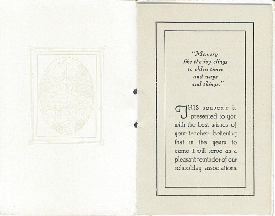 "Memory
like the ivy clings
to olden times
and ways
and things."
THIS souvenir is
presented to you
with the best wishes of
your teacher believing
that in the years to
come it will serve as a
pleasant reminder of our
schoolday associations.